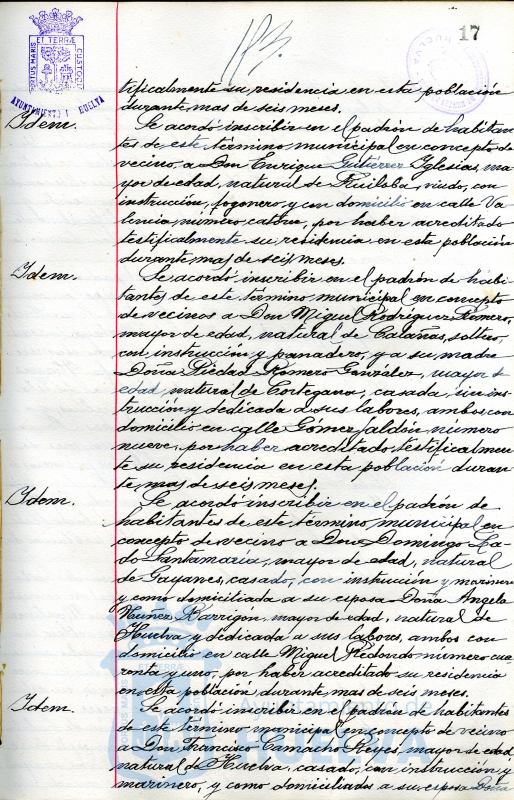 17
PORTUS MARIS ET TERRÆ CUSTODIA
AYUNTAMIENTO HUELVA
tificalmente su residencia en esta población
durante mas de seis meses.
Idem. Se acordó inscribir en el padrón de habitan-
tes de este término municipal en concepto de
vecino, a Don Enrique Gutiérrez Iglesias, ma-
yor de edad, natural de Ruiloba, viudo, con
instrucción, fogonero, y con domicilio en calle Va-
lencia, número catorce, por haber acreditado
testificalmente su residencia en esta población
durante mas de seis meses.
Idem. Se acordó inscribir en el padrón de habi-
tantes de este término municipal en concepto
de vecinos a Don Miguel Rodriguez Romero,
mayor de edad, natural de Calañas, soltero,
con instrucción y panadero, y a su madre
Doña Piedad Romero González, mayor de
edad, natural de Cortegana, casada, sin ins-
trucción y dedicada a sus labores, ambos con
domicilio en calle Gómez Jaldón número
nueve, por haber acreditado testificalmen-
te su residencia en esta población duran-
te mas de seis meses.
Idem. Se acordó inscribir en el padrón de
habitantes de este término municipal en
concepto de vecino a Don Domingo
Santamaría, mayor de edad, natural
de Gayanes, casado, con instrucción y marinero
y como domiciliada a su esposa Doña Angela
Nuñez Barrigón, mayor de edad, natural de
Huelva y dedicada a sus labores, ambos con
domicilio en calle Miguel Redondo número cua-
renta y uno, por haber acreditado su residencia
en esta población durante mas de seis meses.
Idem. Se acordó inscribir en el padrón de habitantes
de este término municipal en concepto de vecino
a Don Francisco Camacho Reyes, mayor de edad,
natural de Huelva, casado, con instrucción y
marinero, y como domiciliados a su esposa Doña
Ayuntamiento de
HUELVA